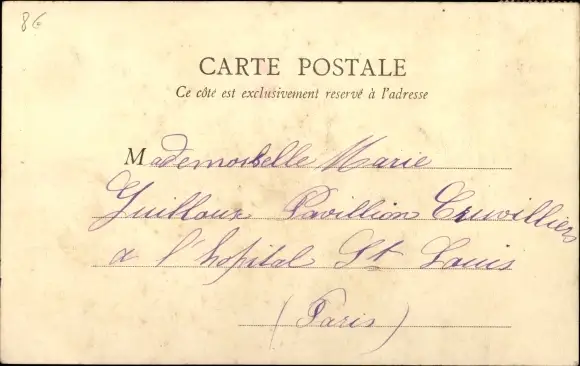 8€
CARTE POSTALE
Ce côté est exclusivement reservé à l'adresse
Mademoiselle Marie
Guilloux Pavillion Cruvilliers
a l'hopital St Louis
(Paris)